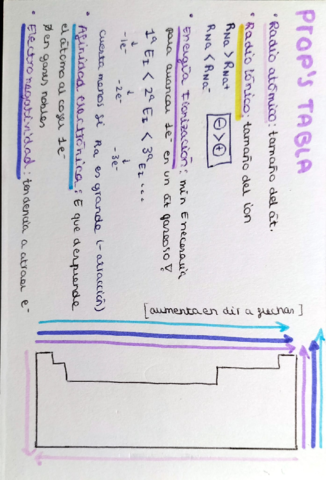 PROP'S TABLA
• Radio atómico: tamaño del át.
• Radio iónico: tamaño del ion
RNa > RNa+
RNa < RNa-
⊖ > ⊕
• Energía Ionización: mín E necesaria
para arrancar 1e- en un át gaseoso ∇
1ª EI < 2ª EI < 3ª EI ...
-1e- -2e- -3e-
cuesta menos si Ra es grande (- atracción)
• Afinidad electrónica: E que desprende
el átomo al coger 1e-
∄ en gases nobles
• Electronegatividad: tendencia a atraer e-
[aumenta en dir a flechas]